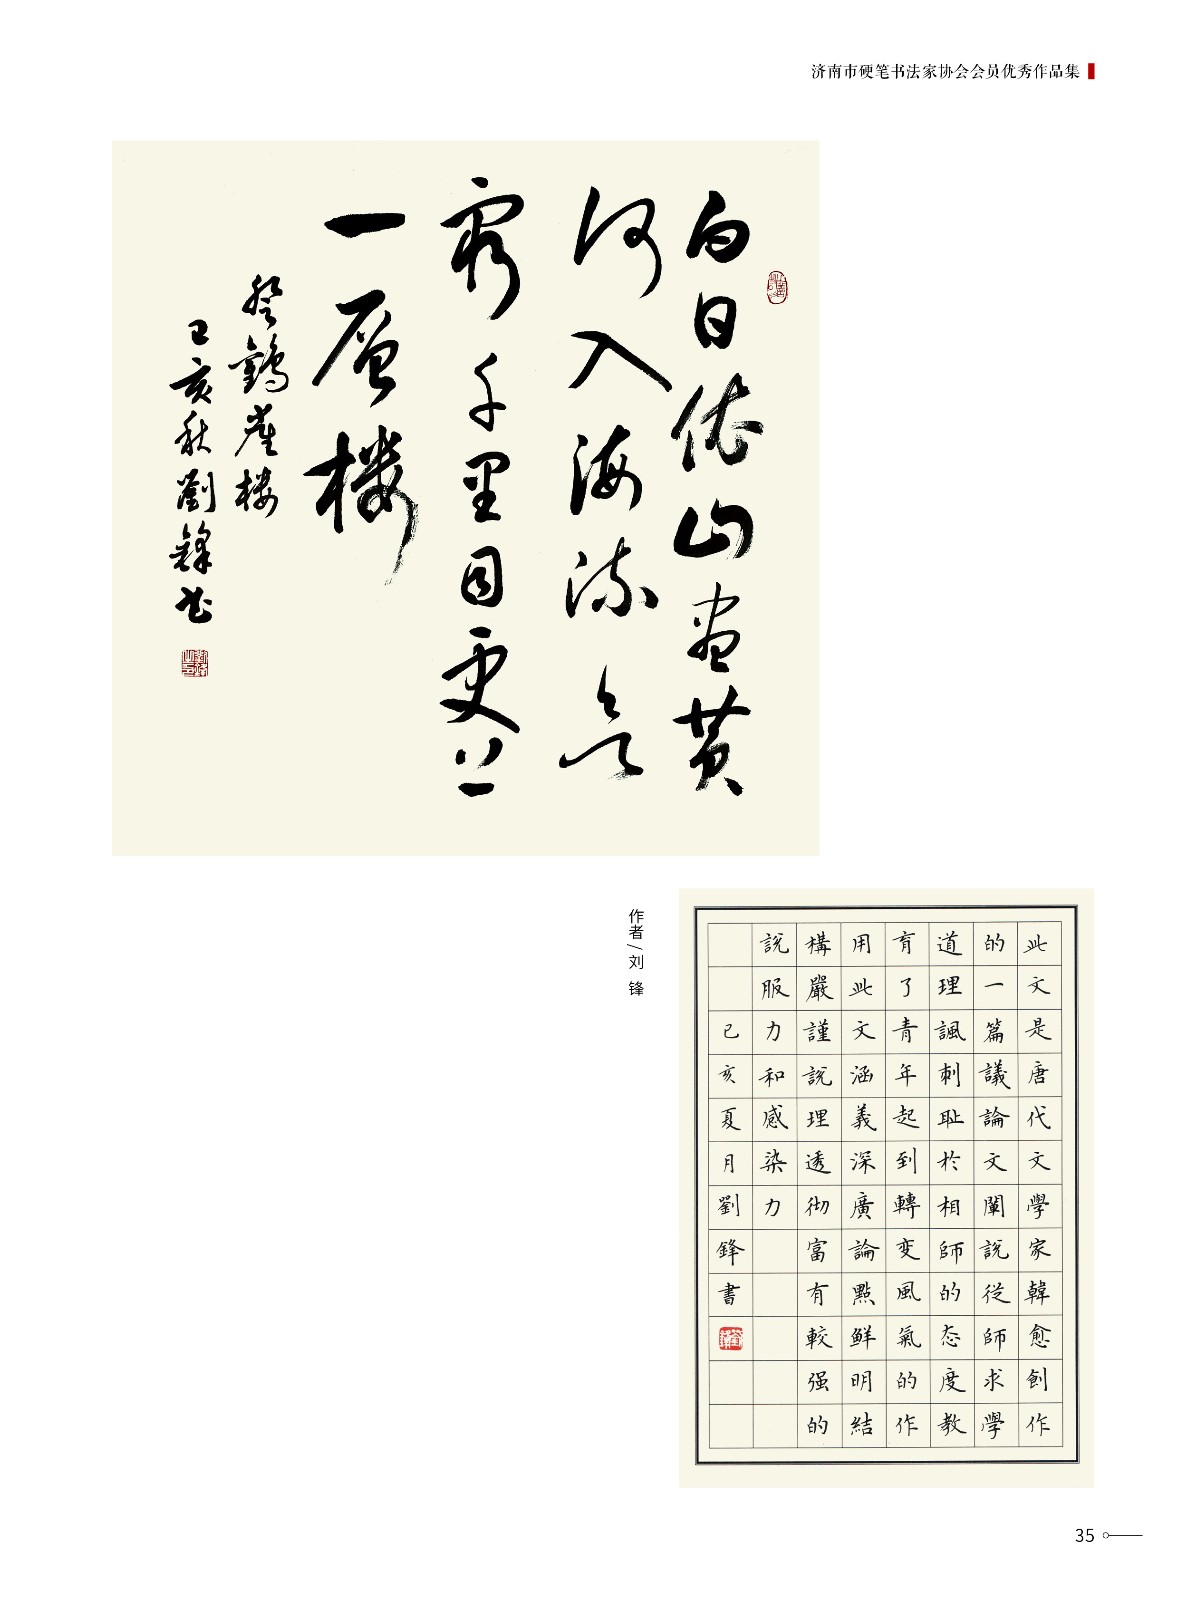 济南市硬笔书法家协会会员优秀作品集
白日依山盡黄
河入海流欲
窮千里目更上
一層楼
登鸛雀楼
己亥秋劉鋒书
作者/刘 锋
此文是唐代文學家韓愈創作
的一篇議論文闡說從師求學
道理諷刺耻於相師的态度教
育了青年起到轉变風氣的作
用此文涵義深廣論點鮮明結
構嚴謹說理透彻富有較强的
說服力和感染力
己亥夏月劉鋒書
35